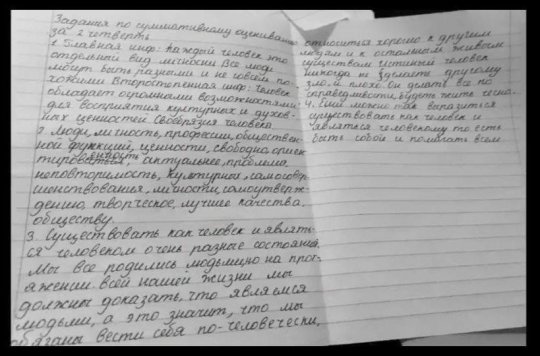 Задания по суммативному оцениванию
за 2 четверть
1. Главная инф: Каждый человек это
отдельный вид личности. Все люди
могут быть разными и не совсем по-
хожими. Второстепенная инф: Человек
обладает огромными возможностями
для восприятия культурных и духов-
ных ценностей. Своеобразия человека
2. Люди, личность, профессии, обществен-
ной функций, ценности, свободно, ориен
тироваться, актуальнее, проблема
ценность
неповторимость, культурных, самосовер-
шенствованья, личности, самоутверж-
дению, творческое, лучшие качества,
обществу.
3. Существовать как человек и являть-
ся человеком очень разные состояния.
Мы все родились людьми, но на прот-
яжении всей нашей жизни мы
должны доказать, что являемся
людьми, а это значит, что мы
обязаны вести себя по-человечески,
относиться хорошо к другим
людям и к остальным живым
существам. Истинный человек
никогда не сделает другому
зло и плохо. Он делать все по
справедливости, будет жить честно.
4. Если можно так выразиться
существовать как человек и
являться человеком, то есть
быть собой и помогать всем